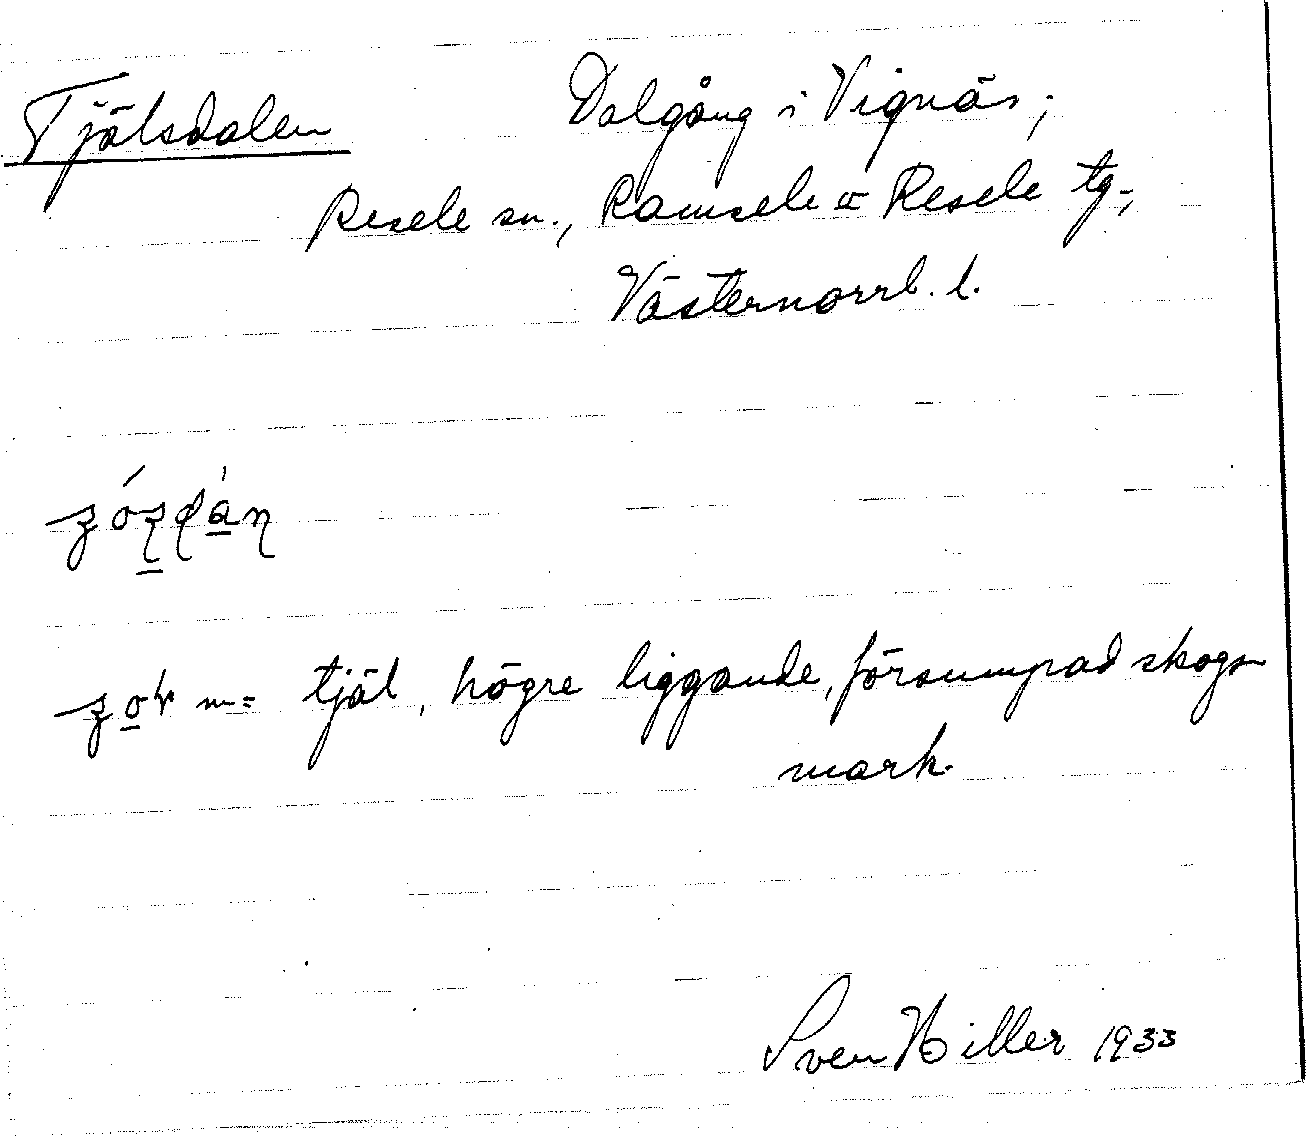 Tjälsdalen Dalgång i Vignäs;
Resele sn., Ramsele o Resele tg.,
Västernorrl. l.
m = tjäl, högre liggande, försumpad skogs-
mark.
Sven Hiller 1933